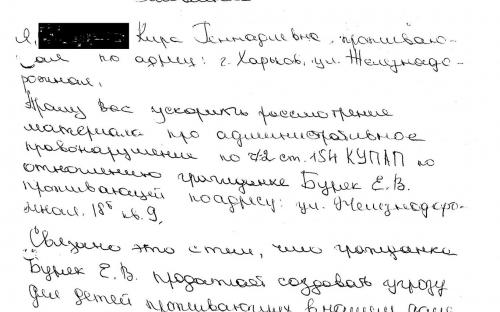 Я, Кира Геннадиевна, проживаю-
щая по адресу: г. Харьков, ул. Железнодо-
рожная,
Прошу вас ускорить рассмотрение
материала про административное
правонарушение по ч2 ст. 154 КУПАП по
отношению гражданке Бурек Е.В.
проживающей по адресу: ул. Железнодоро-
жная. 18 кв. 9,
Связано это с тем, что гражданка
Бурек Е.В. продолжает создавать угрозу
для детей проживающих в нашем доме